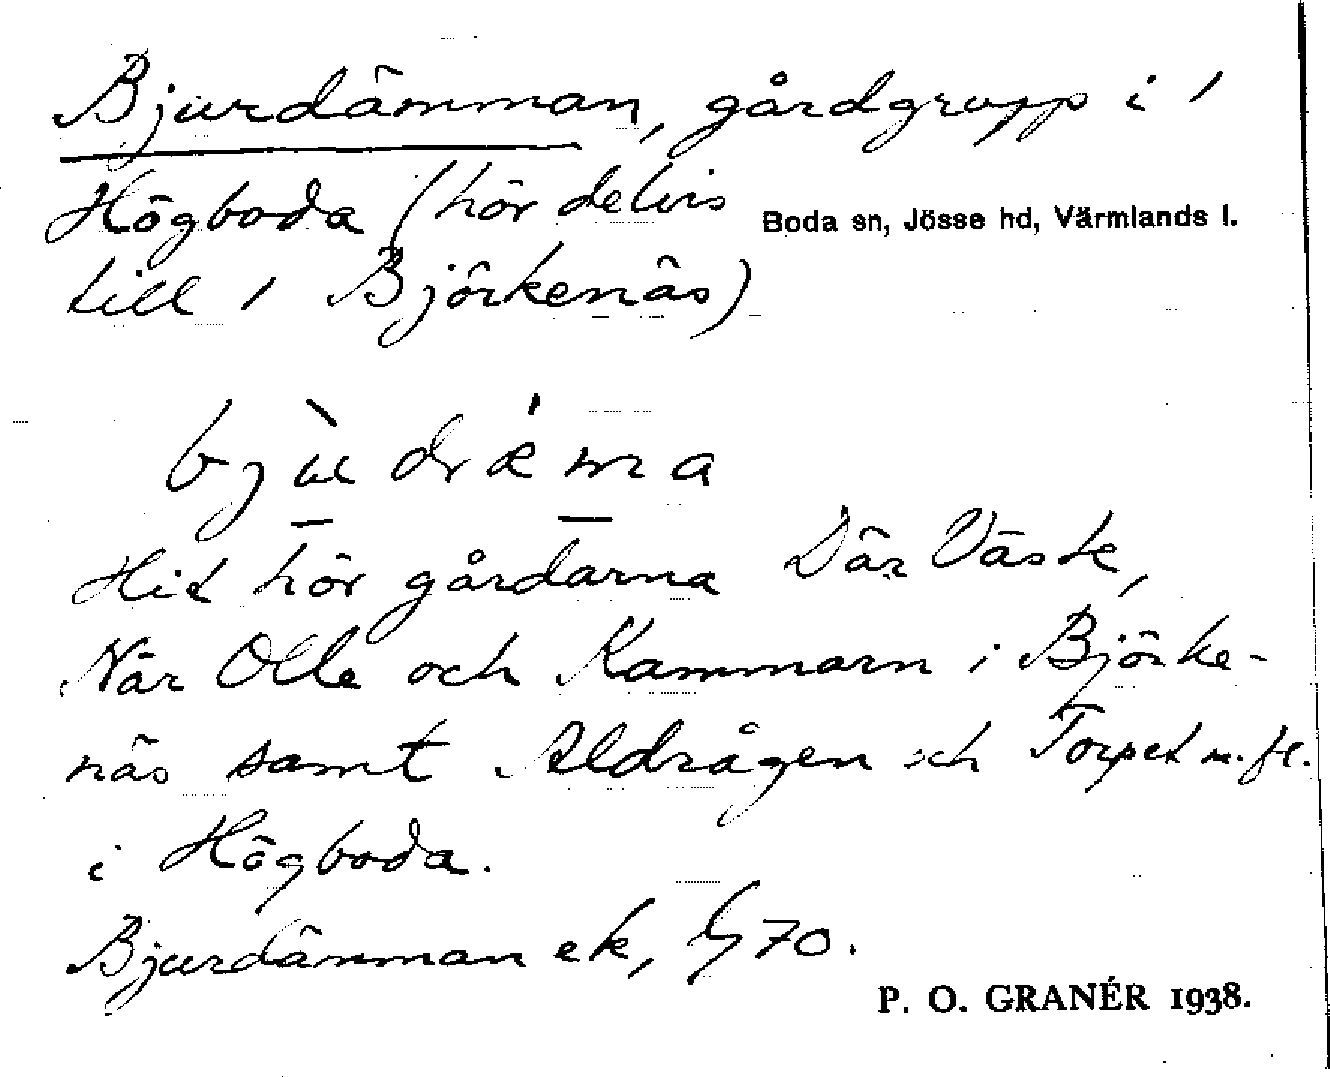 Bjurdämman, gårdgrupp i 1
Högboda (hör delvis
Boda sn, Jösse hd, Värmlands l.
till 1 Björkenäs)
Hit hör gårdarna Där Väste,
När Olle och Kammarn i Björke-
näs samt Aldrågen och Torpet m.fl.
i Högboda.
Bjurdämman ek, G 70.
P. O. GRANÉR 1938.